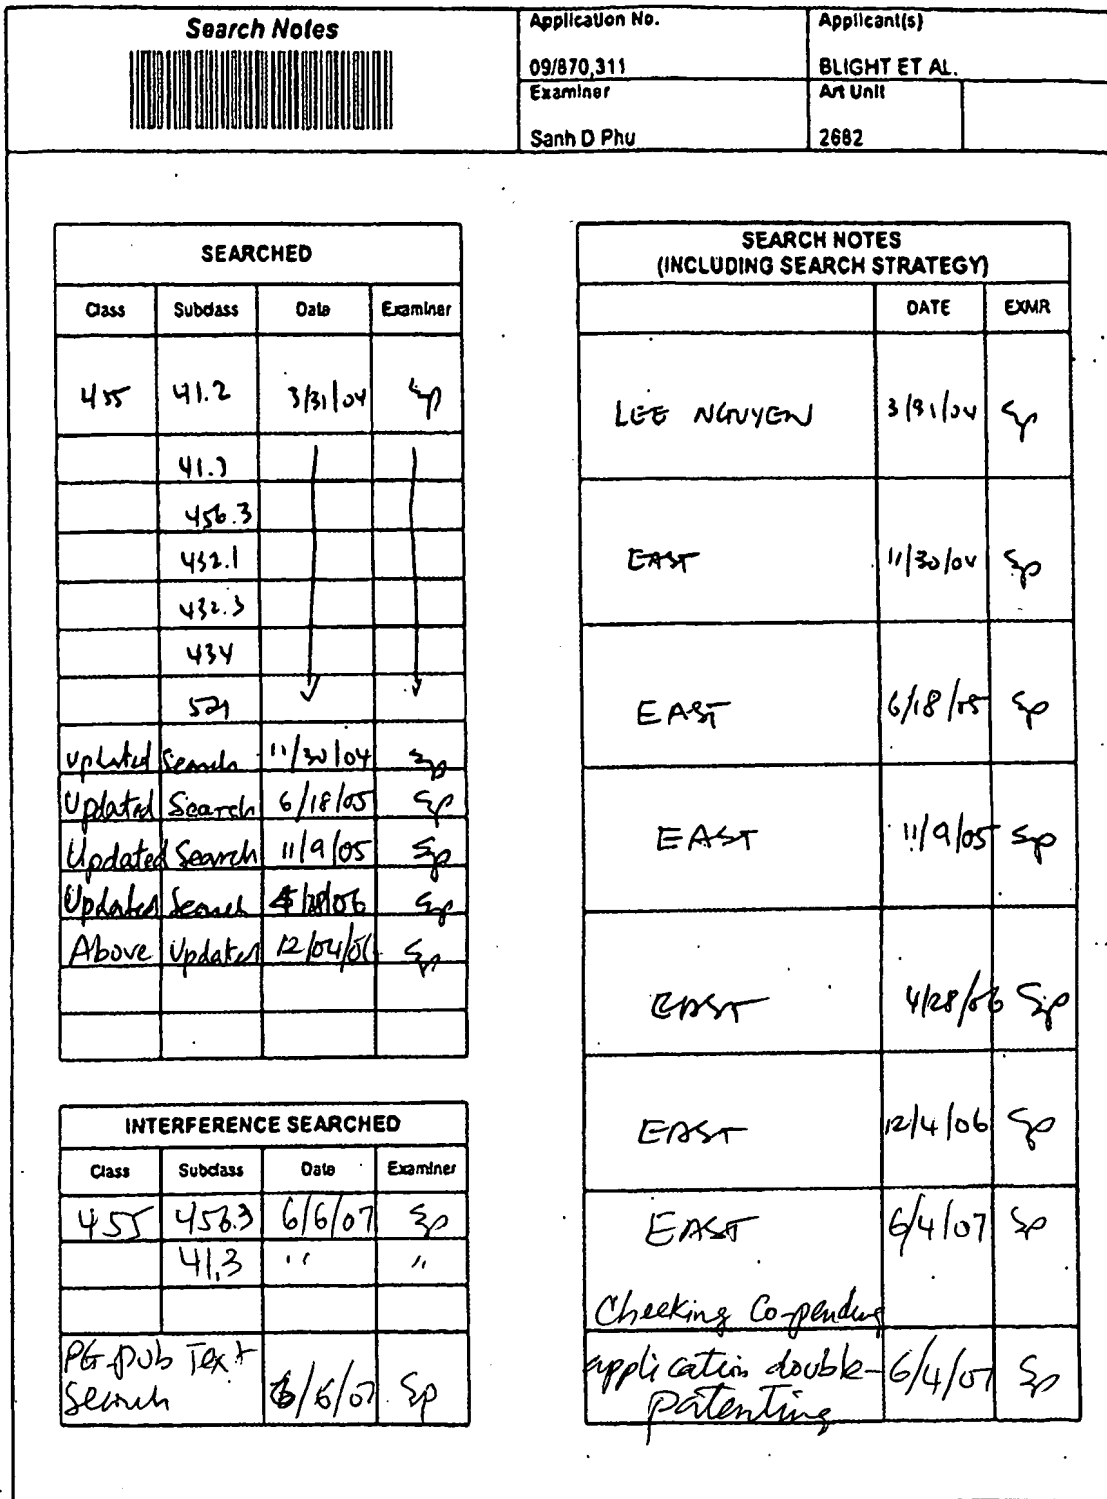 Search Notes
Application No.
Applicant(s)
09/870,311
BLIGHT ET AL.
Examiner
Art Unit
Sanh D Phu
2682
SEARCHED
Class Subclass Date Examiner
455 41.2 3/31/04 Sp
41.3
456.3
432.1
432.3
434
521
Updated Search 11/30/04 Sp
Updated Search 6/18/05 Sp
Updated Search 11/9/05 Sp
Updated Search 4/28/06 Sp
Above Updated 12/04/06 Sp
INTERFERENCE SEARCHED
Class Subclass Date Examiner
455 456.3 6/6/07 Sp
41.3 " "
PG-pub Text
Search 6/6/07 Sp
SEARCH NOTES
(INCLUDING SEARCH STRATEGY)
DATE EXMR
LEE NGUYEN 3/31/04 Sp
EAST 11/30/04 Sp
EAST 6/18/05 Sp
EAST 11/9/05 Sp
EAST 4/28/06 Sp
EAST 12/4/06 Sp
EAST 6/4/07 Sp
Checking Co-pending
application double- 6/4/07 Sp
patenting